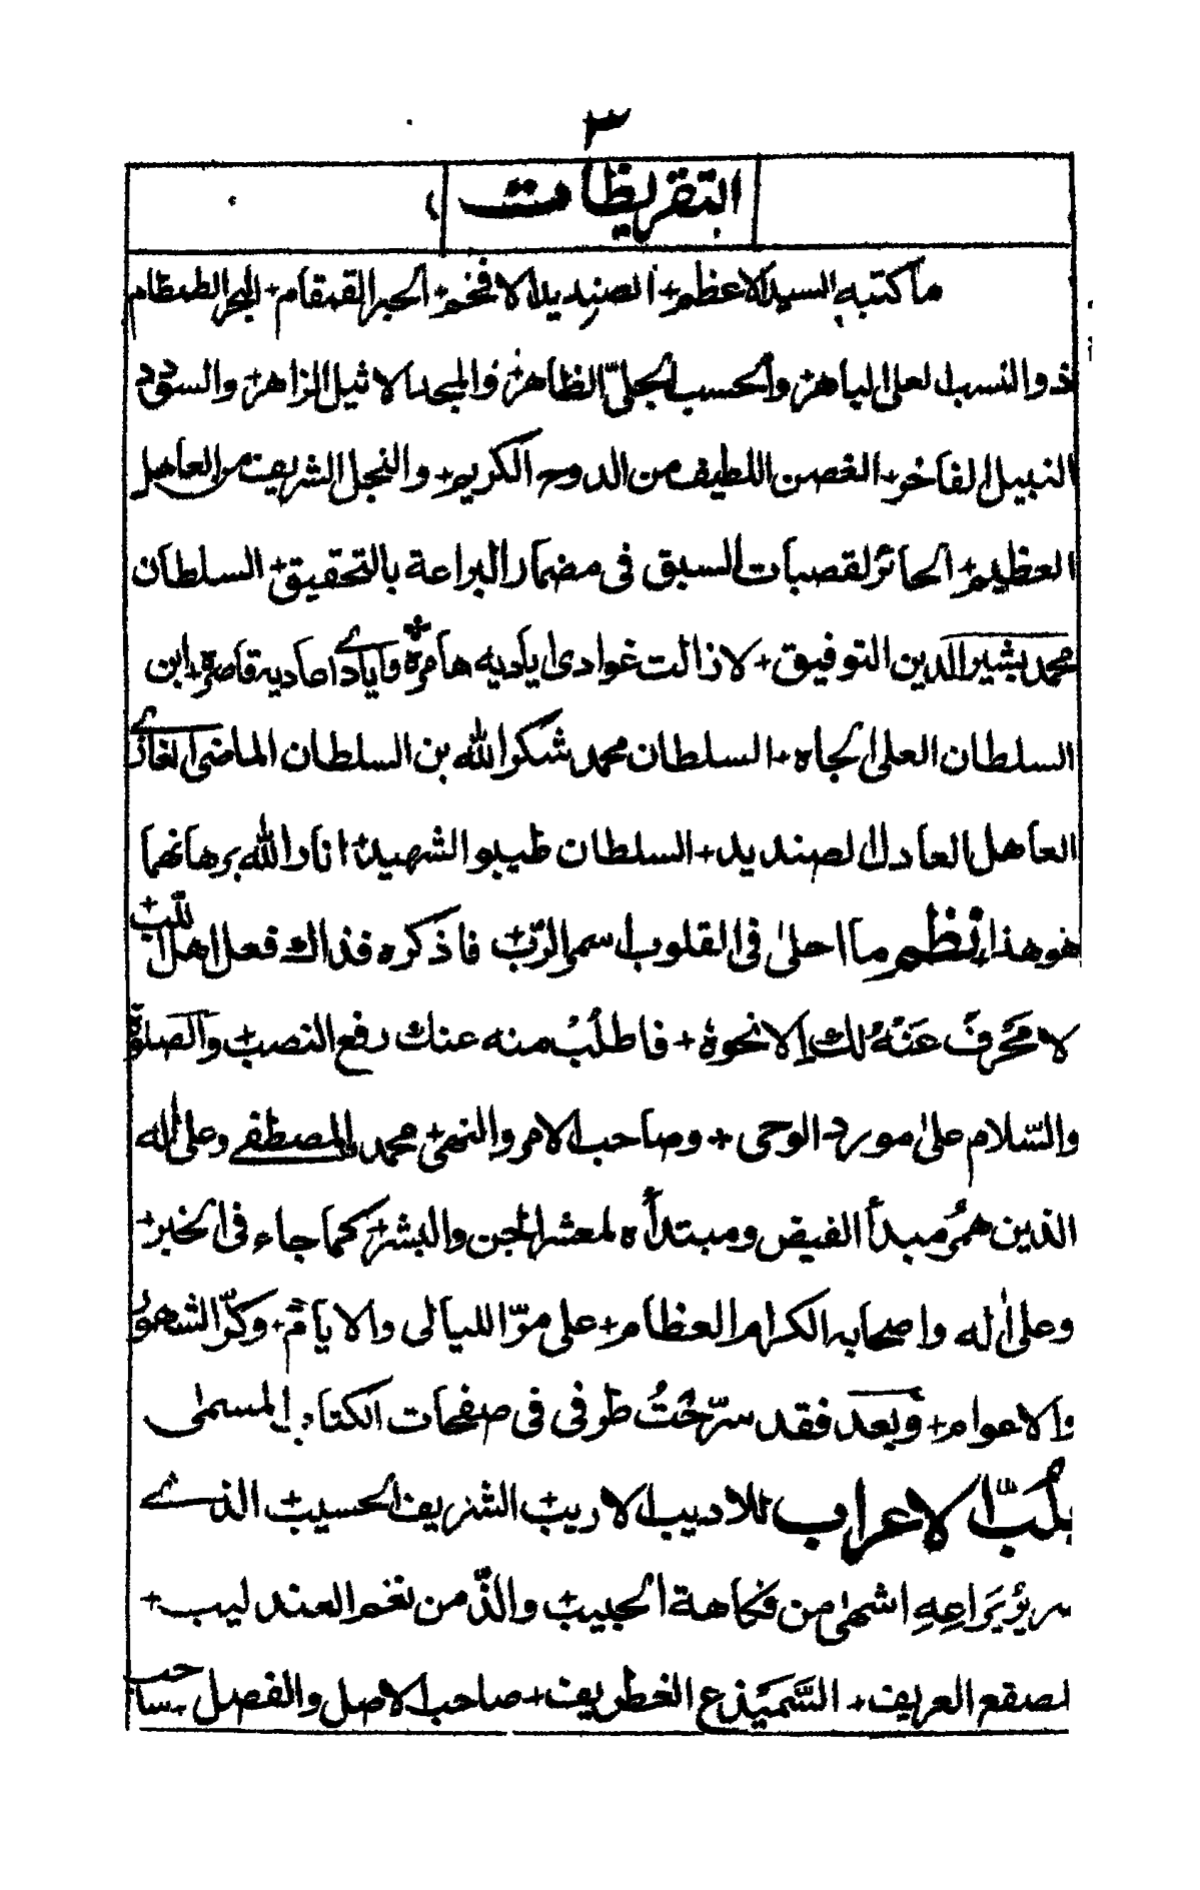 ٣
التقريظات
ما كتبه السيد الاعظم+ الصنديد الافخم+ الحبر القمقام+ البحر الطمطام
ذو النسب العلى الباهر+ والحسب الجلىّ الظاهر+ والمجد الاثيل الزاهر+ والسودد
النبيل الفاخر+ الغصن اللطيف من الدوح الكريم+ والنجل الشريف من العاهل
العظيم+ الحائز لقصبات السبق فى مضمار البراعة بالتحقيق+ السلطان
محمد بشير الدين التوفيق+ لا زالت غوادى اياديه هامرة+ وايادى اعاديه قاصرة+ ابن
السلطان العلى الجاه+ السلطان محمد شكر الله بن السلطان الماضى الغازے
العاهل العادل الصنديد+ السلطان طيبو الشهيد+ انار الله برهانهما
هو هذا+ نظم ما احلىٰ فى القلوب اسم الربّ+ فاذكره فذاك فعل اهل اللّب+
لا محرفَ عَنْهُ لك اِلا نحوهٗ+ فاطلُبْ منه عنك رفع النصب+ والصلوة
والسّلام علىٰ مورد الوحى+ وصاحب الامر والنهى+ محمد المصطفے وعلىٰ اٰله
الذين همُ مبدأ الفيض ومبتدأه لمعشر الجن والبشر+ كما جاء فى الخبر+
وعلىٰ اٰله واصحابه الكرام العظام+ على مرّ الليالى والايام+ وكرّ الشهور
والاعوام+ وبعد فقد سرّحْتُ طرفى فى صفحات الكتاب المسمىٰ
بلُبّ الاعراب للاديب الاريب+ الشريف الحسيب+ الذے
صرير يَراعِهِ اشهىٰ من فكاهة الحبيب+ والذّ من نغم العندليب+
لصقع العريف+ السَّمَيْذع الغطريف+ صاحب الاصل والفصل+ ساحب